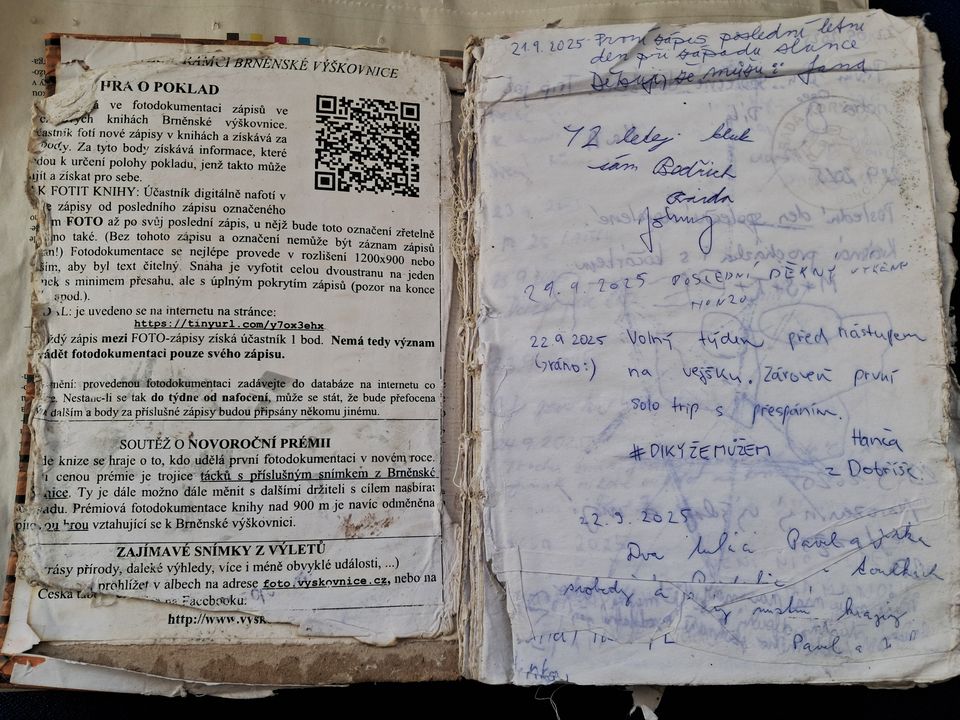 RÁMCI BRNĚNSKÉ VÝŠKOVNICE
HRA O POKLAD
ve fotodokumentaci zápisů ve
knihách Brněnské výškovnice.
častník fotí nové zápisy v knihách a získává za
body. Za tyto body získává informace, které
dou k určení polohy pokladu, jenž takto může
jít a získat pro sebe.
K FOTIT KNIHY: Účastník digitálně nafotí v
e zápisy od posledního zápisu označeného
m FOTO až po svůj poslední zápis, u nějž bude toto označení zřetelně
no také. (Bez tohoto zápisu a označení nemůže být záznam zápisů
án!) Fotodokumentace se nejlépe provede v rozlišení 1200x900 nebo
ším, aby byl text čitelný. Snaha je vyfotit celou dvoustranu na jeden
ek s minimem přesahu, ale s úplným pokrytím zápisů (pozor na konce
spod.).
je uvedeno se na internetu na stránce:
https://tinyurl.com/y7ox3ehx
aždý zápis mezi FOTO-zápisy získá účastník 1 bod. Nemá tedy význam
ádět fotodokumentaci pouze svého zápisu.
nění: provedenou fotodokumentaci zadávejte do databáze na internetu co
e. Nestane-li se tak do týdne od nafocení, může se stát, že bude přefocena
dalším a body za příslušné zápisy budou připsány někomu jinému.
SOUTĚŽ O NOVOROČNÍ PRÉMII
de knize se hraje o to, kdo udělá první fotodokumentaci v novém roce.
cenou prémie je trojice tácků s příslušným snímkem z Brněnské
nice. Ty je dále možno dále měnit s dalšími držiteli s cílem nasbírat
adu. Prémiová fotodokumentace knihy nad 900 m je navíc odměněna
ou hrou vztahující se k Brněnské výškovnici.
ZAJÍMAVÉ SNÍMKY Z VÝLETŮ
rásy přírody, daleké výhledy, více i méně obvyklé události, ...)
prohlížet v albech na adrese foto.vyskovnice.cz, nebo na
Česká na Facebooku:
http://www.vysk
21.9.2025 - První zápis poslední letní
den při západu slunce
Děkuji že můžu :) Jana
72 letej kluk
sám Bedřich
Johnny
21.9.2025 POSLEDNÍ PĚKNÝ VÍKEND
HONZO
22.9 2025 Volný týden před nástupem
(ráno:) na vejšku. Zároveň první
solo trip s přespáním.
#DIKYŽEMŮŽEM Hanča
z Dobříše
22.9.2025
Dva tuláci Pavel a Jirka
svobody a
místní krajiny
Pavel a J